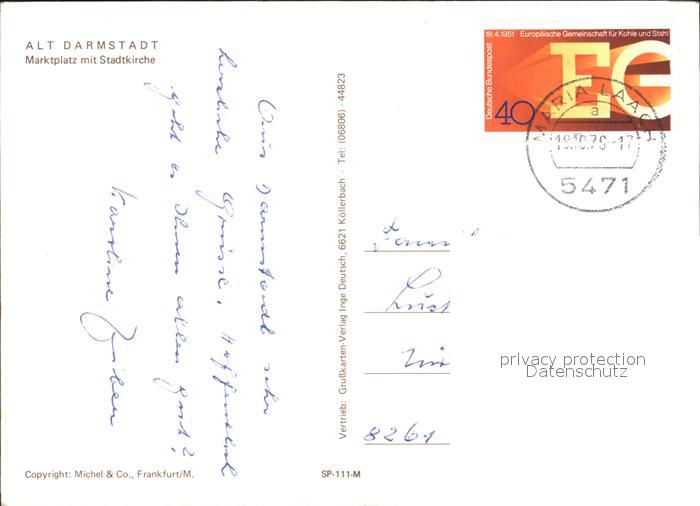 ALT DARMSTADT
Marktplatz mit Stadtkirche
Aus Darmstadt sehr
herzliche Grüsse. Hoffentlich
geht es Ihnen allen gut?
Karoline
Vertrieb: Grußkarten-Verlag Inge Deutsch, 6621 Köllerbach · Tel: (06806) -44823
Copyright: Michel & Co., Frankfurt/M.
SP-111-M
18.4.1951 Europäische Gemeinschaft für Kohle und Stahl
Deutsche Bundespost
40
MARIA LAACH
a
-17
5471
Fami
8261
privacy protection
Datenschutz